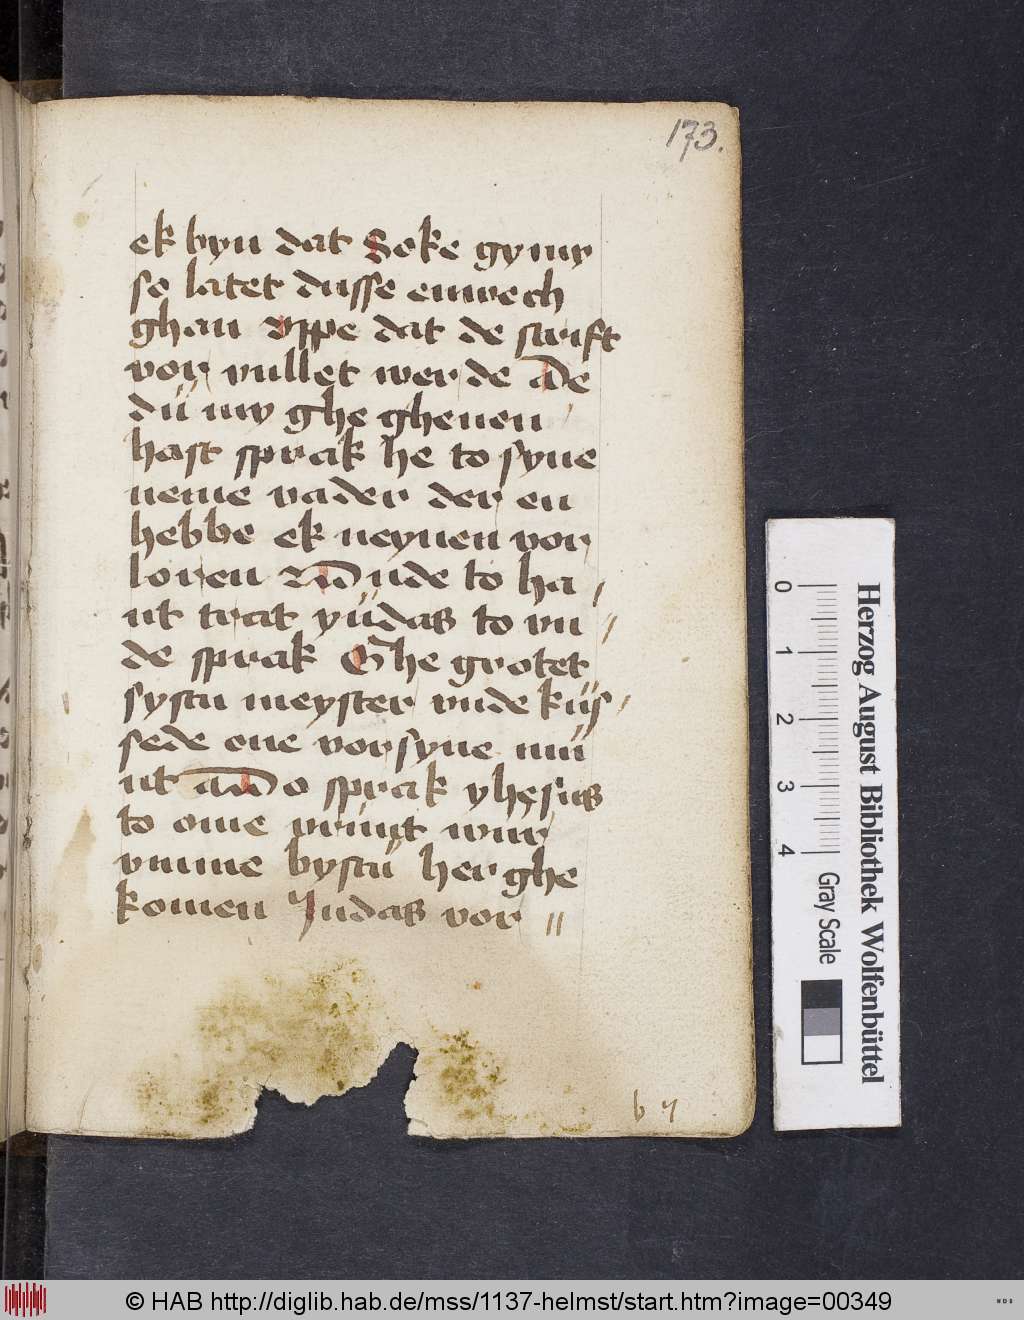 173.
ek byn dat Soke gy my
so latet dusse enwech
ghan Uppe dat de scrift
vor vullet werde de
dü my ghe gheuen
hast sprak he to syne
neme vader der en
hebbe ek neynen vor
loren Unde to ha /
nt trat yüdas to vn //
de sprak Ghe grotet
systu meyster vnde küs /
sede ene vor syne mü
nt do sprak yhesus
to ome vrünt wur
vmme bystü her ghe
komen Judas vor //
b
Herzog August Bibliothek Wolfenbüttel
0 1 2 3 4
Gray Scale
© HAB http://diglib.hab.de/mss/1137-helmst/start.htm?image=00349